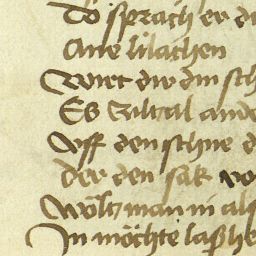 Do sprach er du
Ane lilachen
Wirt dir din sch
Es Zaltzal ande
Vff den schne d
der den sak vo
Wöltz man in als
In möchte lasshe